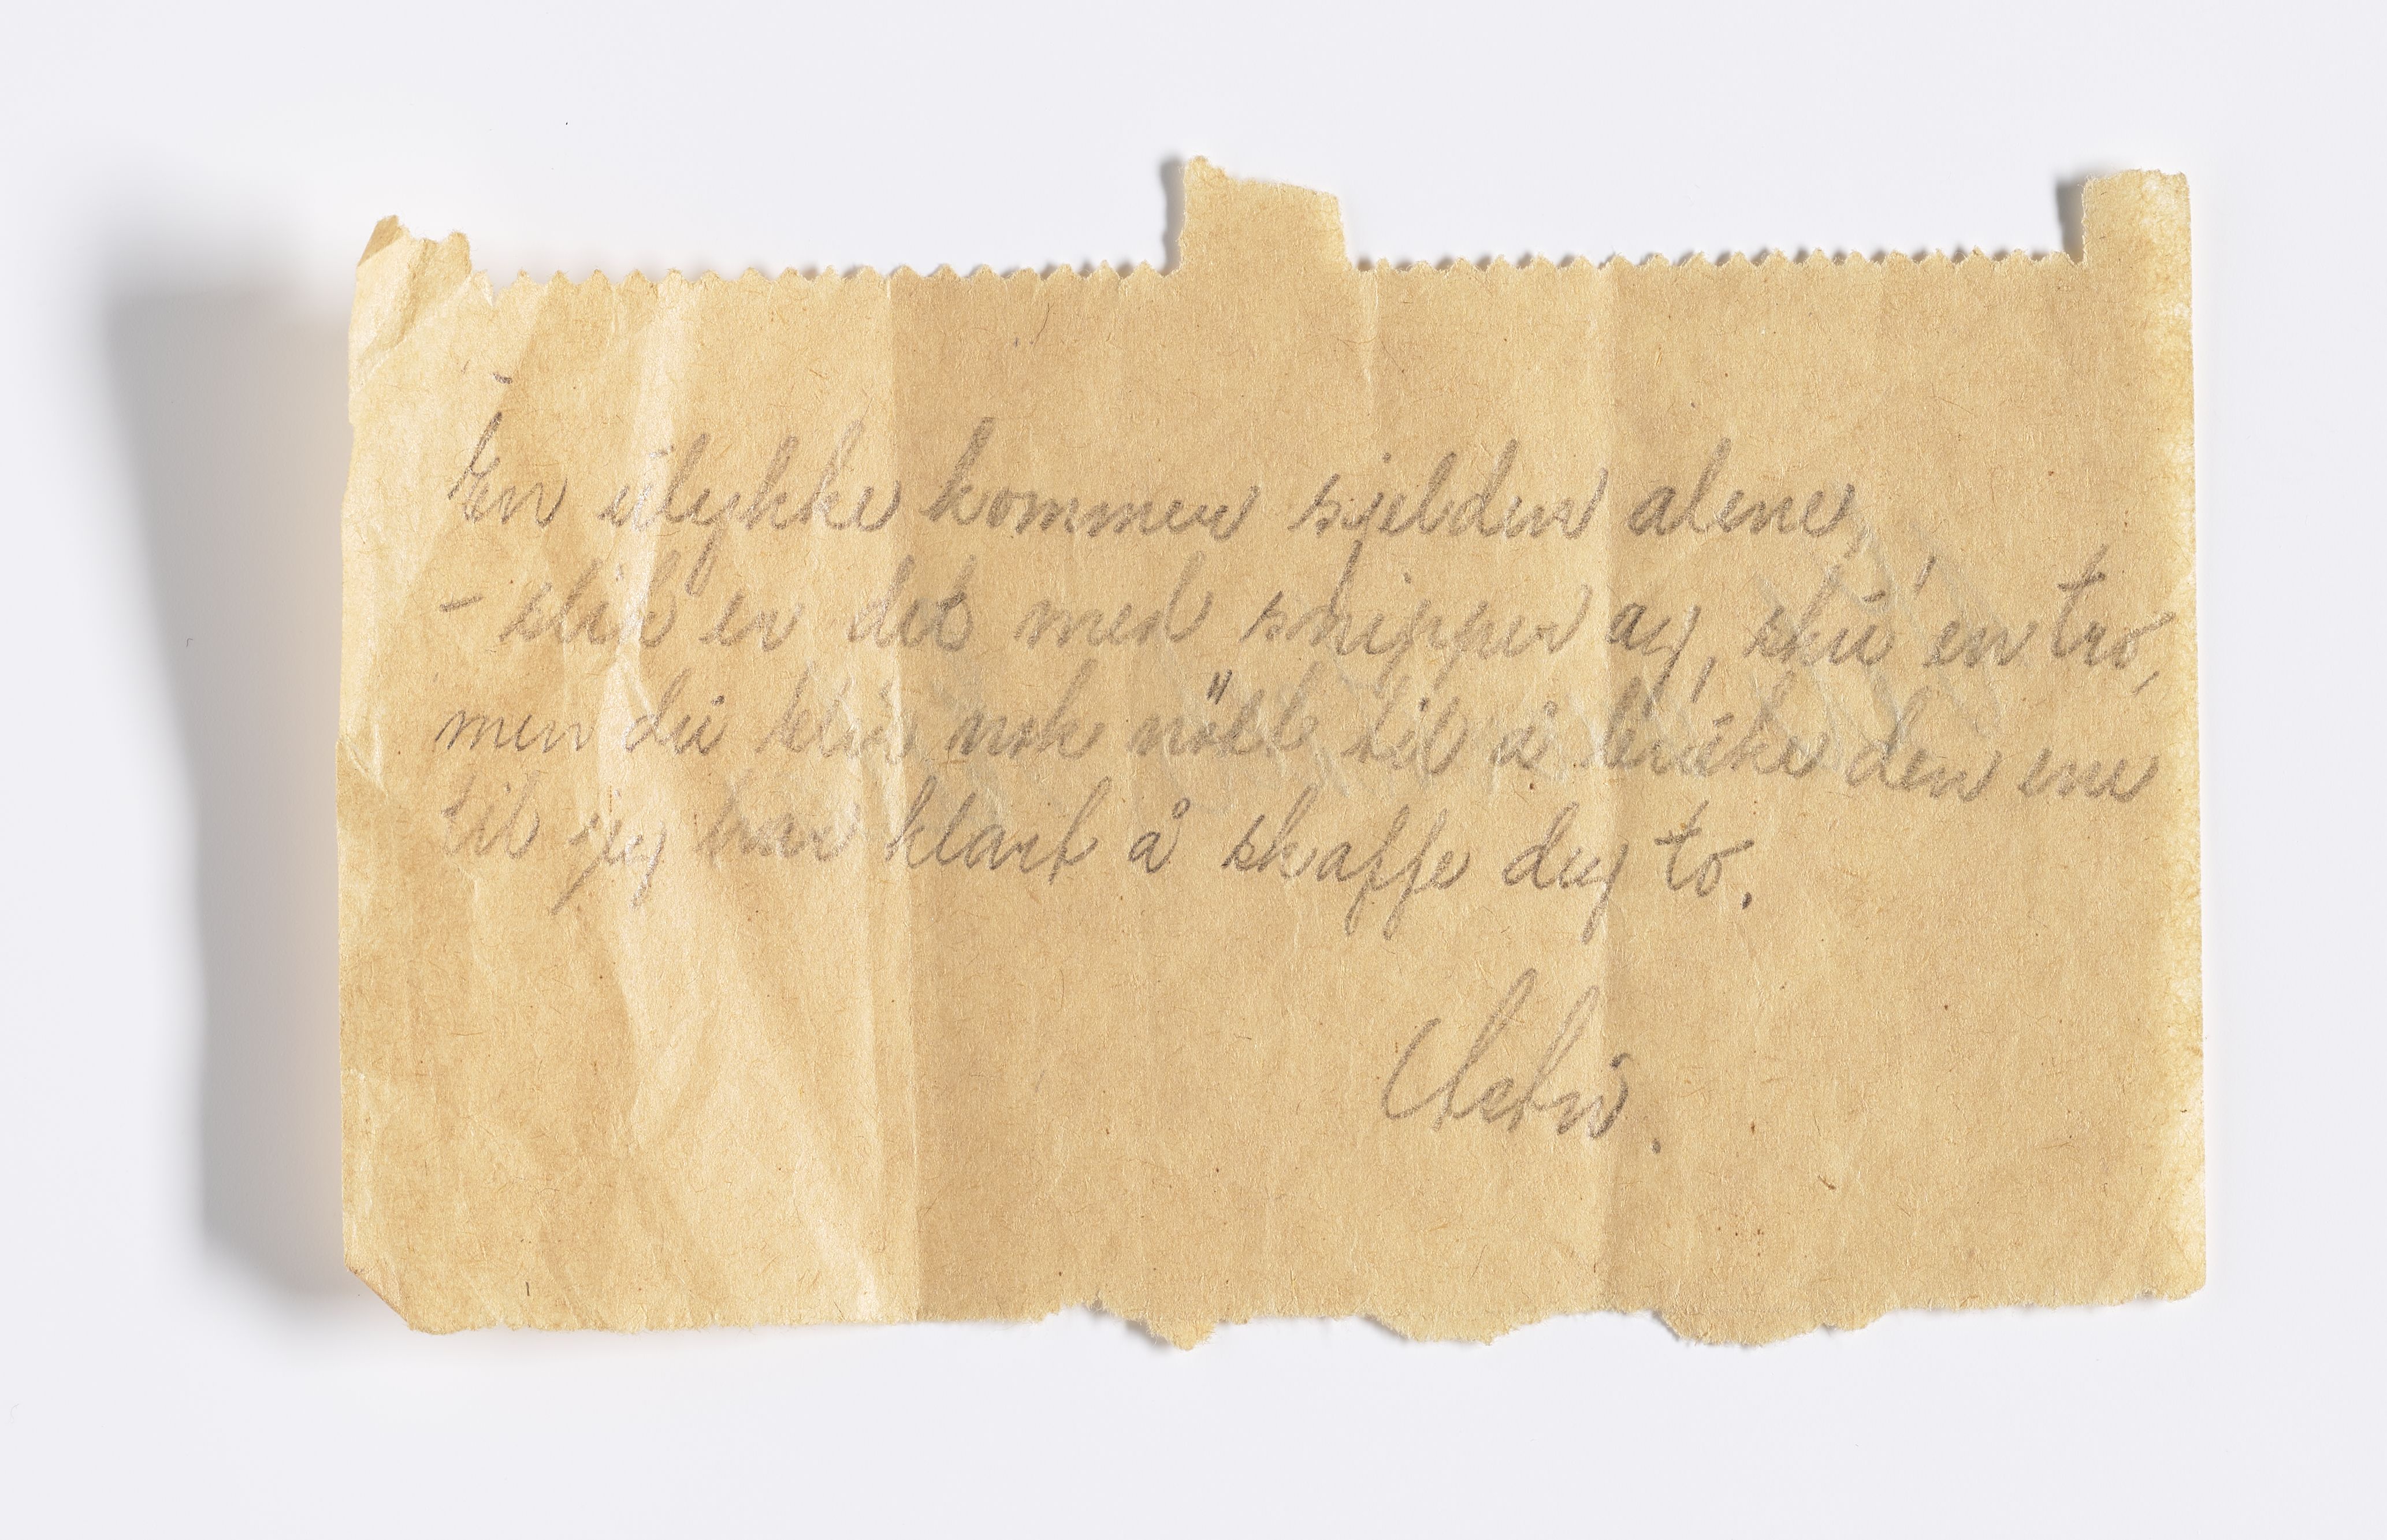 En ulykke kommer sjelden alene,
– slik er det med snipper ag, sku' en tro,
men du blir nok nött til å bruke den ene
til jeg har klart å skaffe deg to.